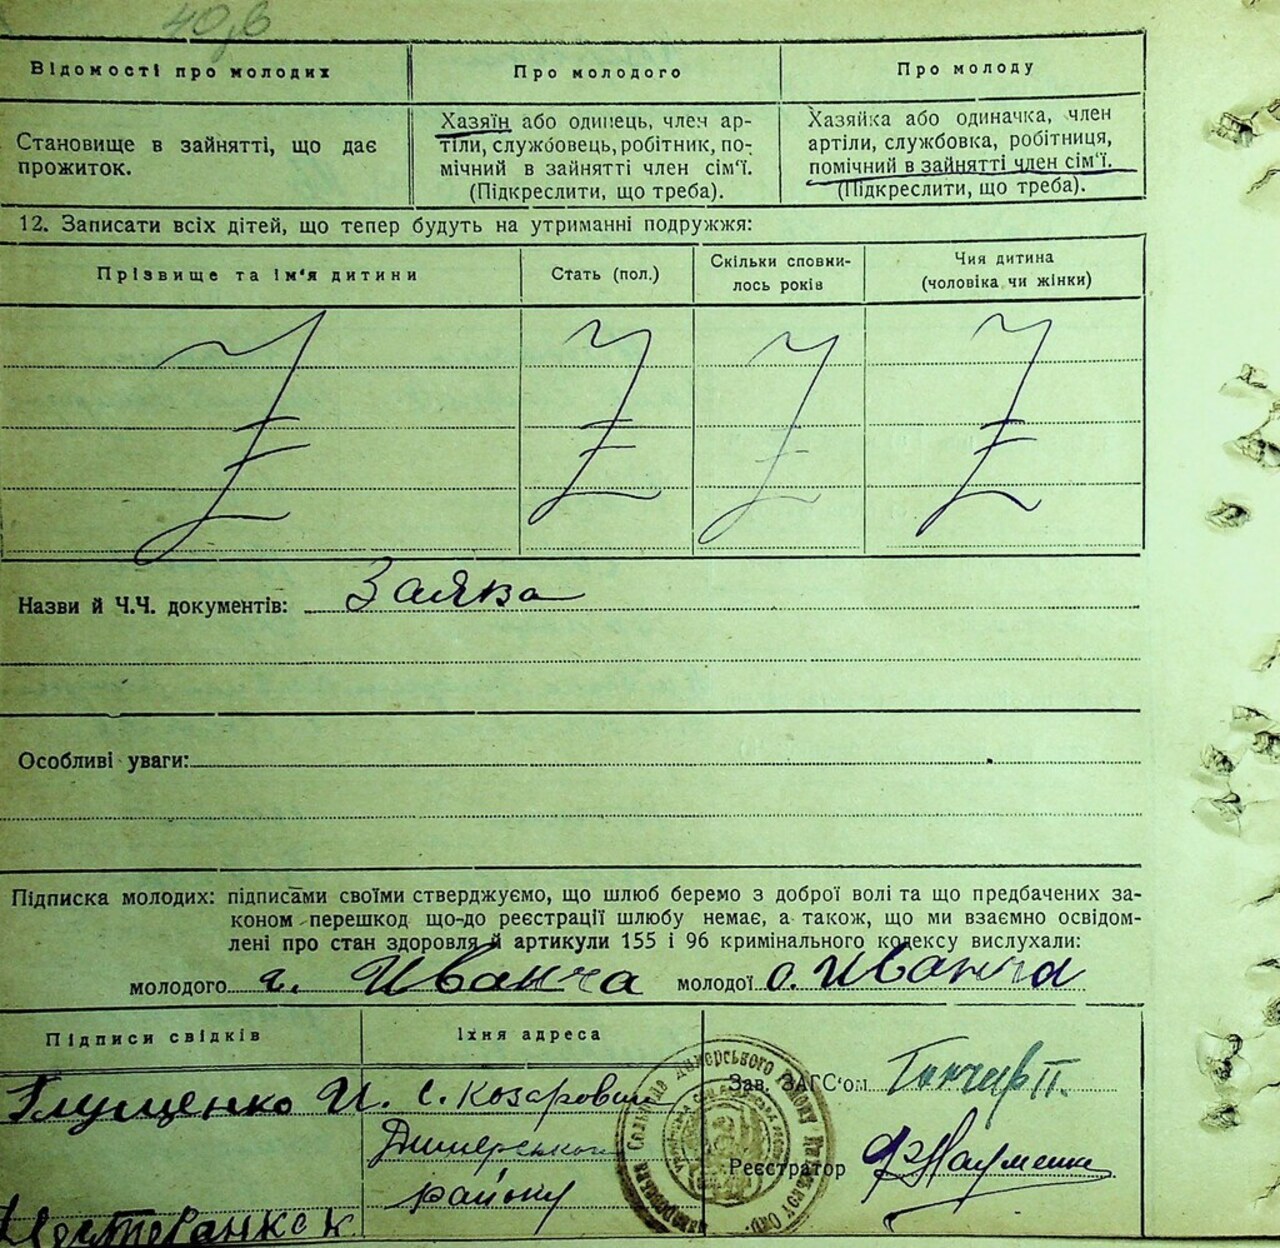 40,в
Відомості про молодих
Про молодого
Про молоду
Становище в зайнятті, що дає
прожиток.
Хазяїн або одинець, член ар-
тіли, службовець, робітник, по-
мічний в зайнятті член сім'ї.
(Підкреслити, що треба).
Хазяйка або одиначка, член
артіли, службовка, робітниця,
помічний в зайнятті член сім'ї.
(Підкреслити, що треба).
12. Записати всіх дітей, що тепер будуть на утриманні подружжя:
Прізвище та ім'я дитини
Стать (пол.)
Скільки сповни-
лось років
Чия дитина
(чоловіка чи жінки)
Назви й Ч.Ч. документів: Заява
Особливі уваги:
Підписка молодих: підписами своїми стверджуємо, що шлюб беремо з доброї волі та що предбачених за-
коном перешкод що-до реєстрації шлюбу немає, а також, що ми взаємно освідом-
лені про стан здоровля й артикули 155 і 96 кримінального кодексу вислухали:
молодого Иванча молодої О. Иванча
Підписи свідків
Їхня адреса
Зав. ЗАГС'ом
Глущенко И.
с. Козарови
Димерського
району
Реєстратор Науменко
Димерського Району